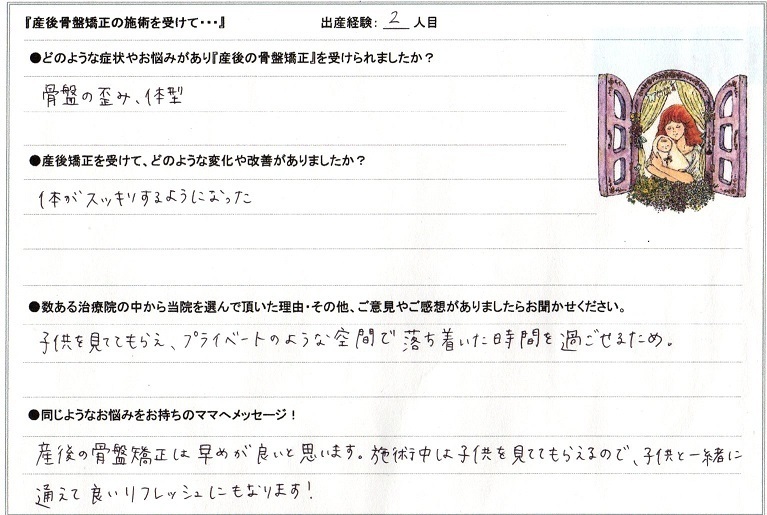 『産後骨盤矯正の施術を受けて・・・』 出産経験: 2 人目
●どのような症状やお悩みがあり『産後の骨盤矯正』を受けられましたか？
骨盤の歪み、体型
●産後矯正を受けて、どのような変化や改善がありましたか？
体がスッキリするようになった
●数ある治療院の中から当院を選んで頂いた理由・その他、ご意見やご感想がありましたらお聞かせください。
子供を見ててもらえ、プライベートのような空間で落ち着いた時間を過ごせるため。
●同じようなお悩みをお持ちのママへメッセージ！
産後の骨盤矯正は早めが良いと思います。施術中は子供を見ててもらえるので、子供と一緒に
通えて良いリフレッシュにもなります！